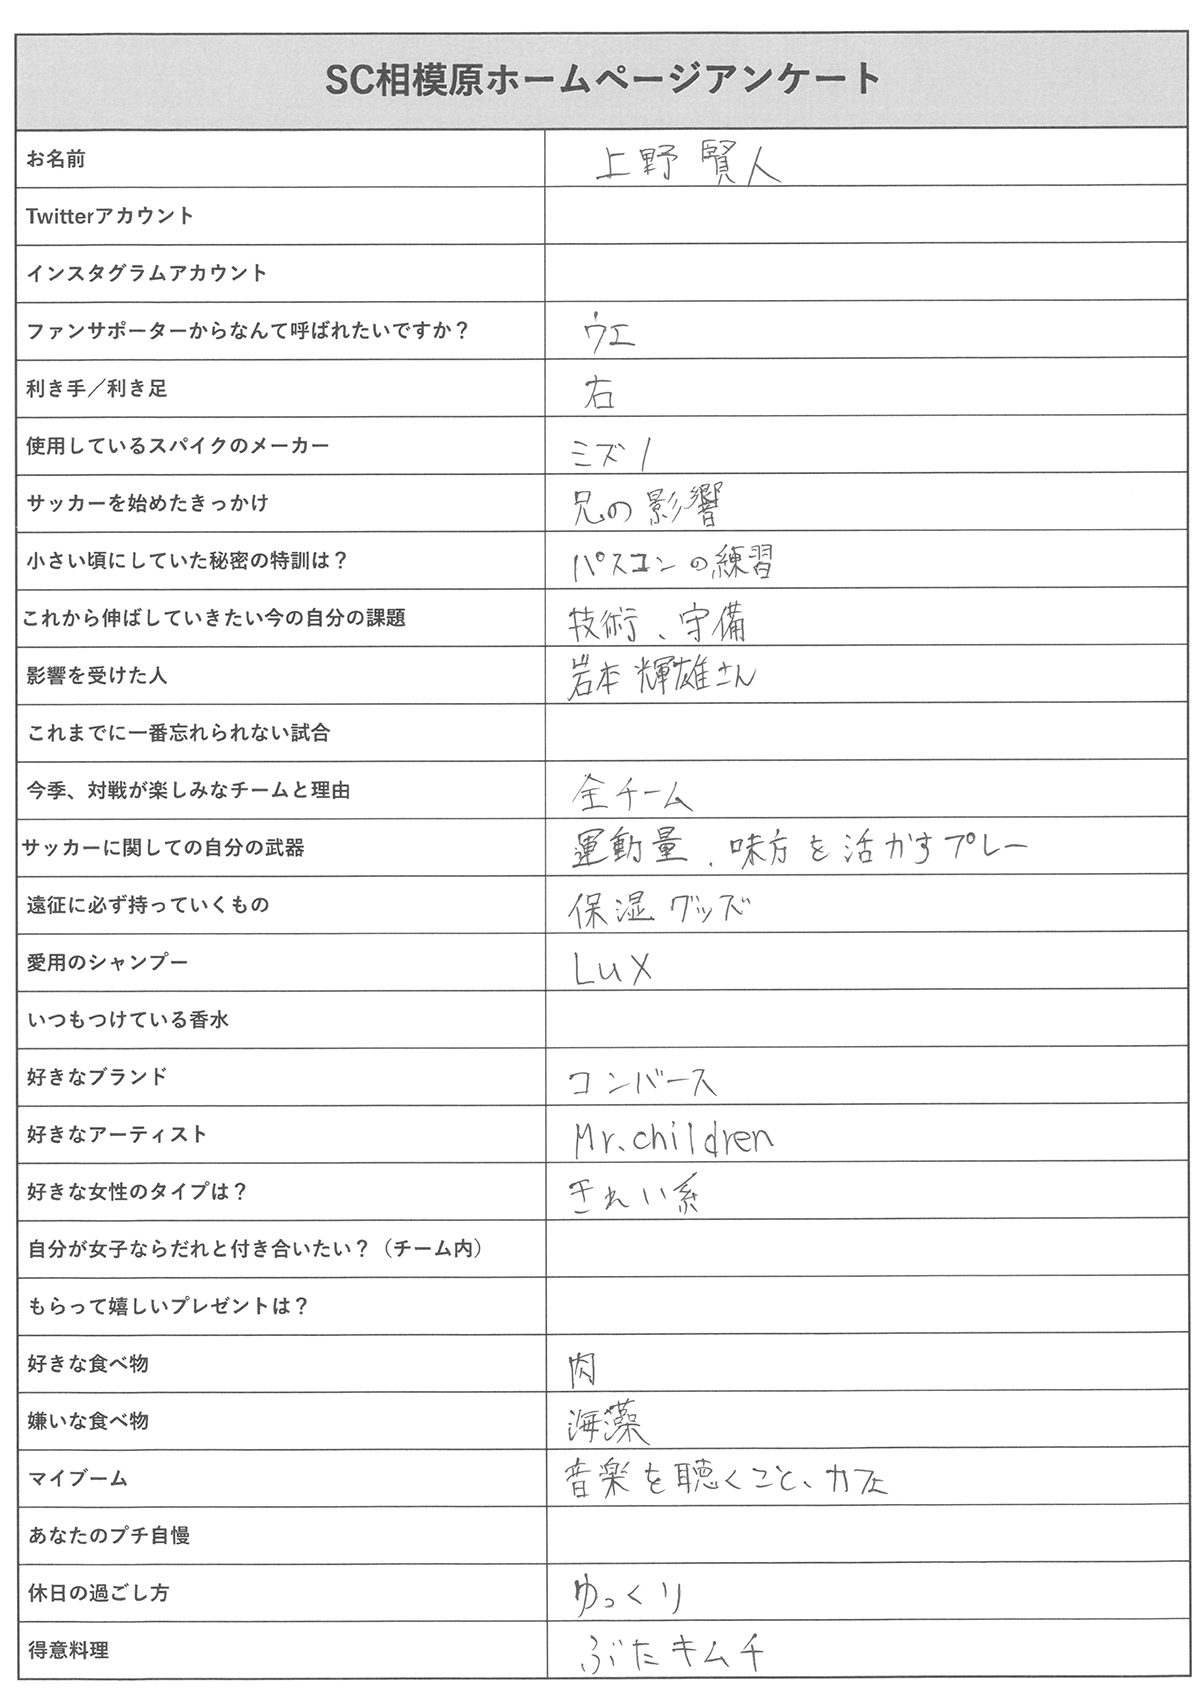 SC相模原ホームページアンケート
お名前 上野 賢人
Twitterアカウント
インスタグラムアカウント
ファンサポーターからなんて呼ばれたいですか？ ウエ
利き手／利き足 右
使用しているスパイクのメーカー ミズノ
サッカーを始めたきっかけ 兄の影響
小さい頃にしていた秘密の特訓は？ パスコンの練習
これから伸ばしていきたい今の自分の課題 技術、守備
影響を受けた人 岩本輝雄さん
これまでに一番忘れられない試合
今季、対戦が楽しみなチームと理由 全チーム
サッカーに関しての自分の武器 運動量、味方を活かすプレー
遠征に必ず持っていくもの 保湿グッズ
愛用のシャンプー Lux
いつもつけている香水
好きなブランド コンバース
好きなアーティスト Mr.children
好きな女性のタイプは？ きれい系
自分が女子ならだれと付き合いたい？（チーム内）
もらって嬉しいプレゼントは？
好きな食べ物 肉
嫌いな食べ物 海藻
マイブーム 音楽を聴くこと、カフェ
あなたのプチ自慢
休日の過ごし方 ゆっくり
得意料理 ぶたキムチ